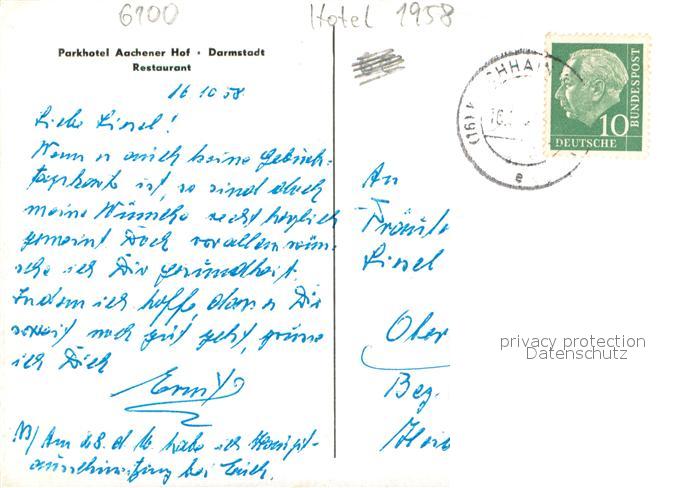 6100 Hotel 1958
Parkhotel Aachener Hof · Darmstadt
Restaurant
16 10 58
Liebe Liesel!
Wenn es auch keine Geburts-
tagskarte ist, so sind doch
meine Wünsche recht herzlich
gemeint Doch vor allem wün-
sche ich Dir Gesundheit.
Indem ich hoffe, dass es Dir
soweit noch gut geht, grüsse
ich Dich
Ernst
NB/ Am 18. d M. habe ich
bei Euch.
10
DEUTSCHE
BUNDESPOST
An
Fräule
Liesel
Ober
Bez.
privacy protection
Datenschutz